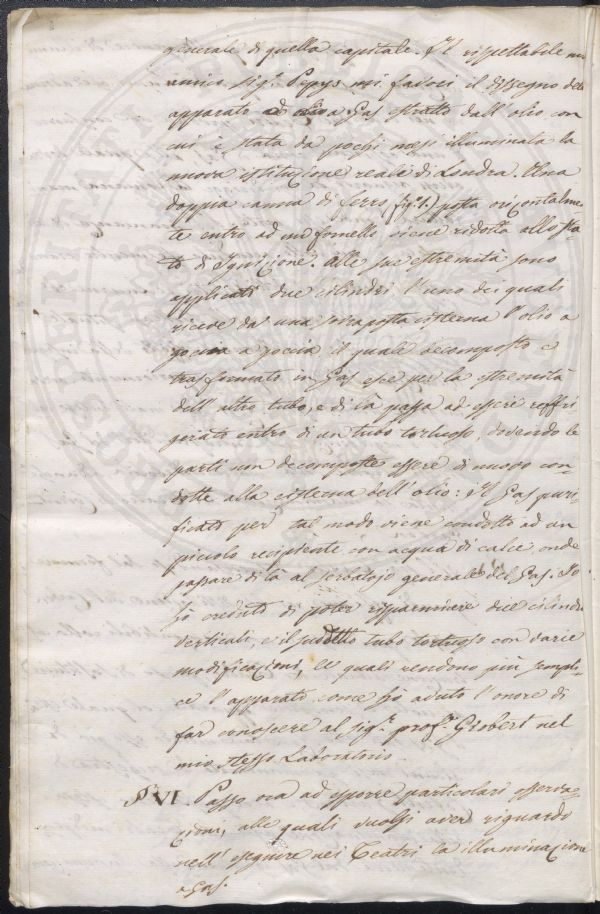 generale di quella capitale. Il rispettabile mio
amico Sig.r Pepys mi favorì il disegno dell'
apparato ad a Gas estratto dall'olio con
cui è stata da pochi mesi illuminata la
nuova istituzione reale di Londra. Una
doppia canna di ferro (fig. 1.) posta orizontalmen=
te entro ad un fornello viene ridotta allo sta=
to di Ignizione. Alle sue estremità sono
applicati due cilindri l'uno dei quali
riceve da una sovraposta cisterna l'olio a
goccia a goccia il quale decomposto e
trasformato in Gas esce per la estremità
dell'altro tubo, e di là passa ad essere raffri
gerato entro di un tubo tortuoso, dovendo le
parti non decomposte essere di nuovo con=
dotte alla cisterna dell'olio: il Gas puri=
ficato per tal modo viene condotto ad un
piccolo recipiente con acqua di calce, onde
passare di là al serbatojo generale del Gas. Io
hò creduto di poter risparmiare due cilindri
verticali, e il suddetto tubo tortuoso con varie
modificazioni, le quali rendono più sempli=
ce l'apparato come hò avuto l'onore di
far conoscere al sig.r prof.r Giobert nel
mio stesso Laboratorio.
§ VI. Passo ora ad esporre particolari osserva=
zioni, alle quali vuolsi aver riguardo
nell'eseguire nei Teatri la illuminazione
a Gas.